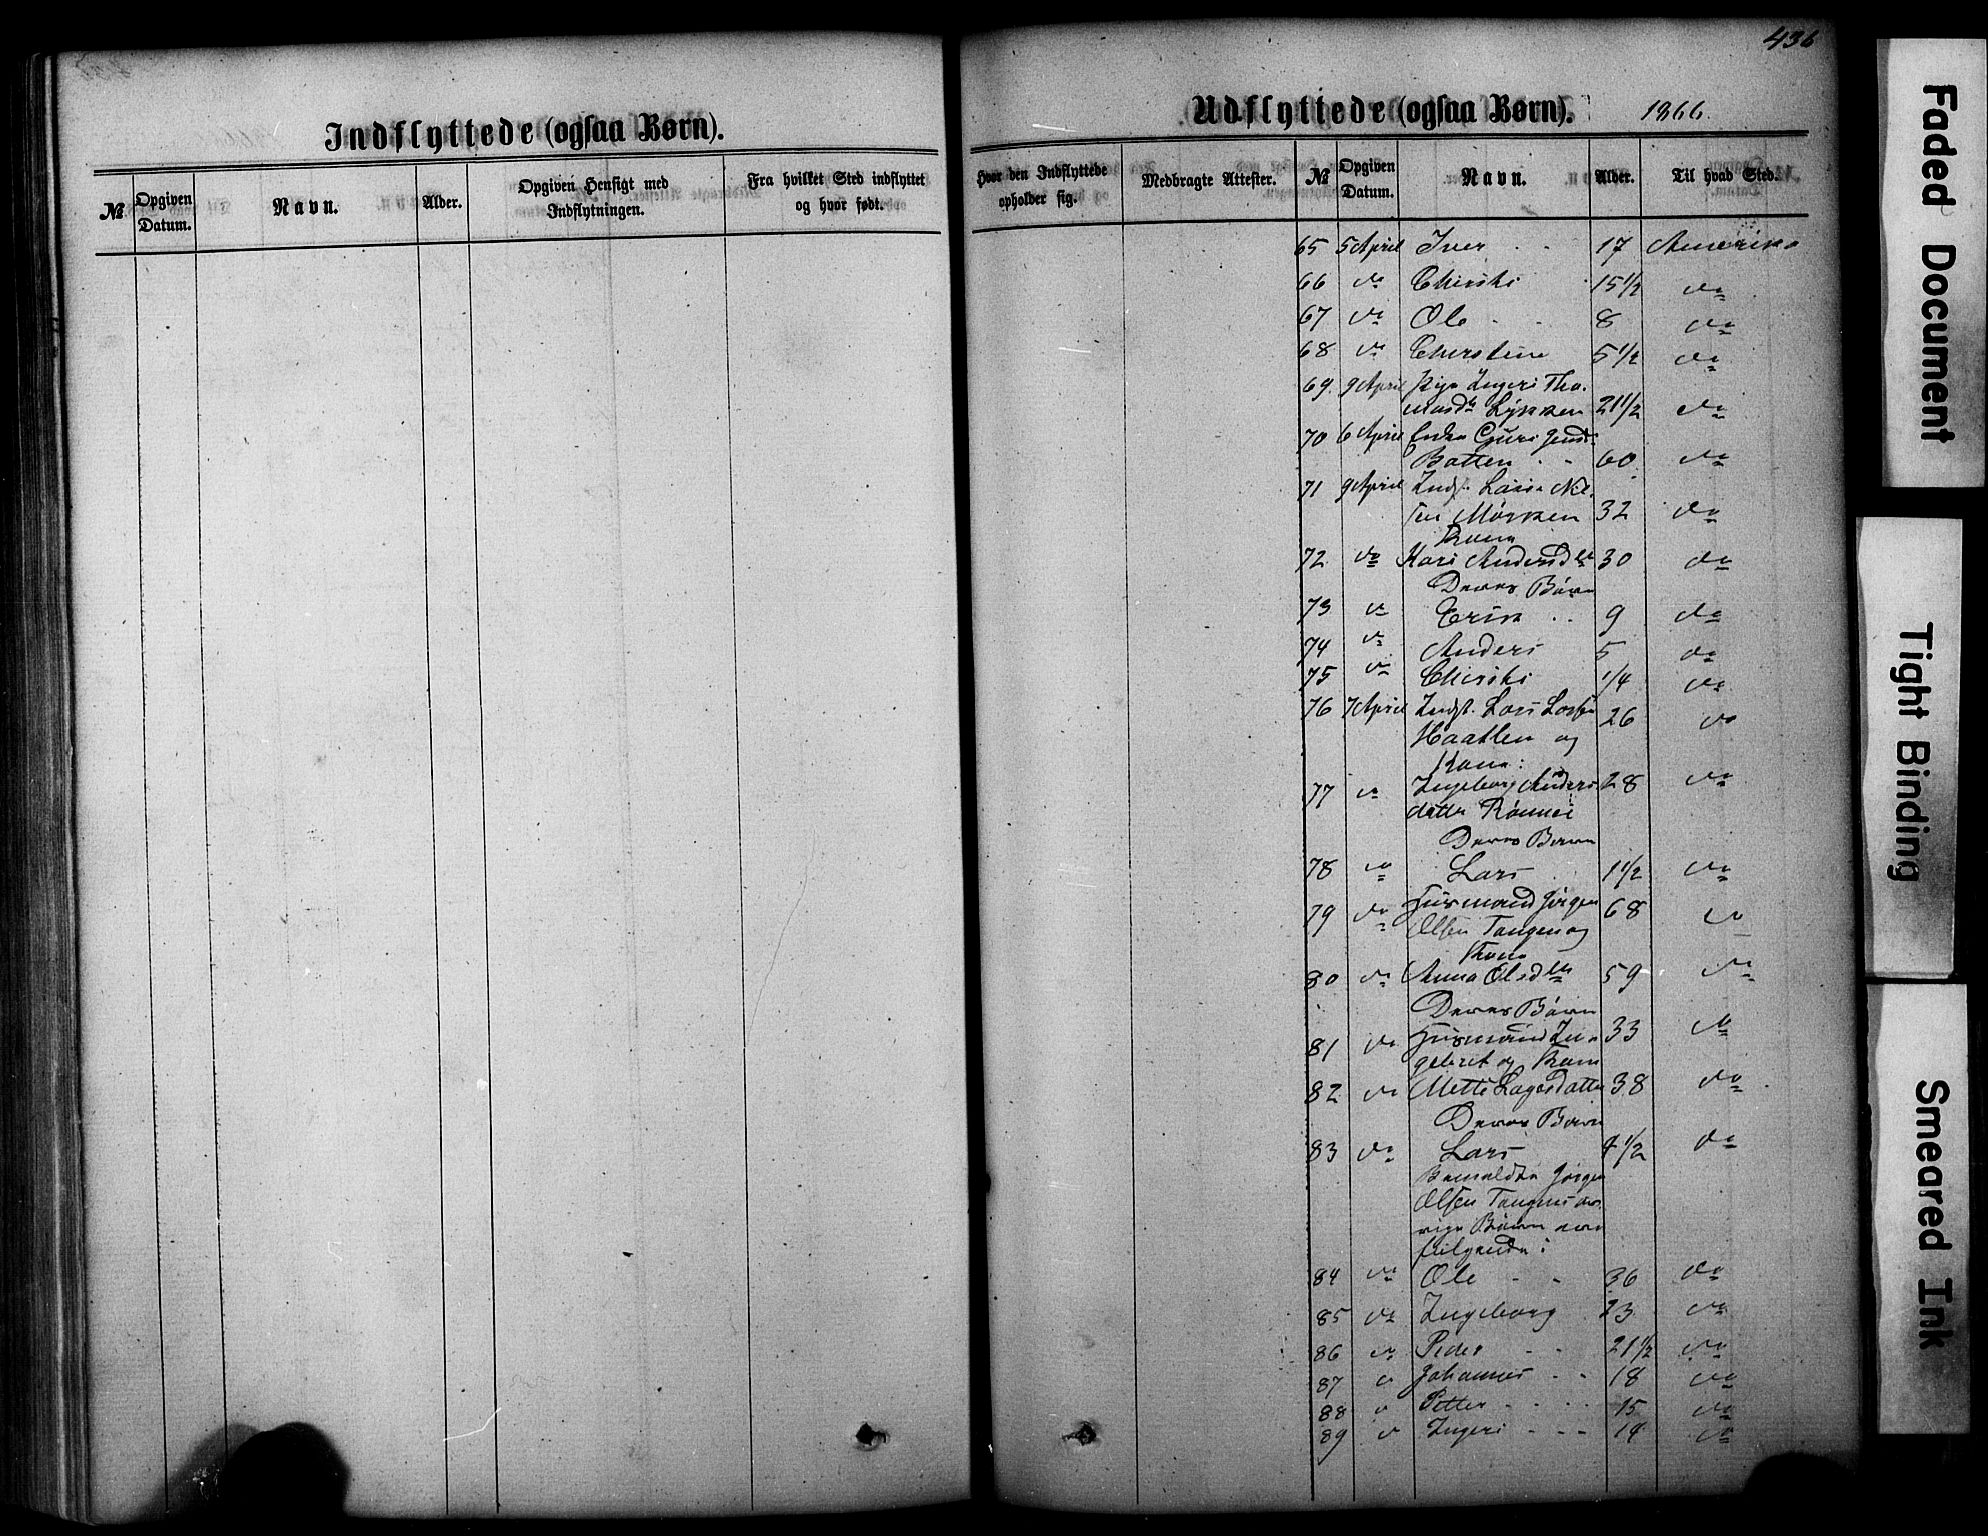 436
Indflyttede (ogsaa Børn).
№
Opgiven Datum.
Navn.
Alder.
Opgiven Hensigt med Indflytningen.
Fra hvilket Sted indflyttet og hvor født.
Udflyttede (ogsaa Børn). 1866.
Hvor den Indflyttede opholder sig.
Medbragte Attester.
№
Opgiven Datum.
Navn.
Alder.
Til hvad Sted.
65 5 April Iver 17 Amerika
66 do Chersti 15 1/2 do
67 do Ole 8 do
68 do Cherstine 5 1/2 do
69. 9 April Pige Ingeri Tho-
masdtr Lykken 21 1/2 do
70 6 April Enke Guri
Batten 60 do
71 9 April Indst. Lars Nil-
sen Mørken 32 do
Kone
72 do Kari Andersdtr 30 do
Deres Børn
73 do Erik 9 do
74 do Anders 5 do
75 do Chersti 1/4 do
76 7 April Indst. Lars Larsen 26 do
Haatlen og
Kone:
77 do Ingeborg Anders 28 do
datter Rønnei
Deres Barn
78 do Lars 1 1/2 do
79 do Husmand Jørgen 68 do
Olsen Tangen og
Kone
80 do Anna Olsdtr 59 do
Deres Børn
81 do Husmand In- 33 do
gebret og Kone
82 do Mette Larsdatter 38 do
Deres Barn
83 do Lars 7 1/2 do
Bemeldte Jørgen
Olsen Tangens øv-
rige Børn ere
følgende:
84 do Ole 36 do
85 do Ingeborg 23 do
86 do Peder 21 1/2 do
87 do Johannes 18 do
88 do Petter 15 do
89 do Ingeri 14 do
Faded Document
Tight Binding
Smeared Ink